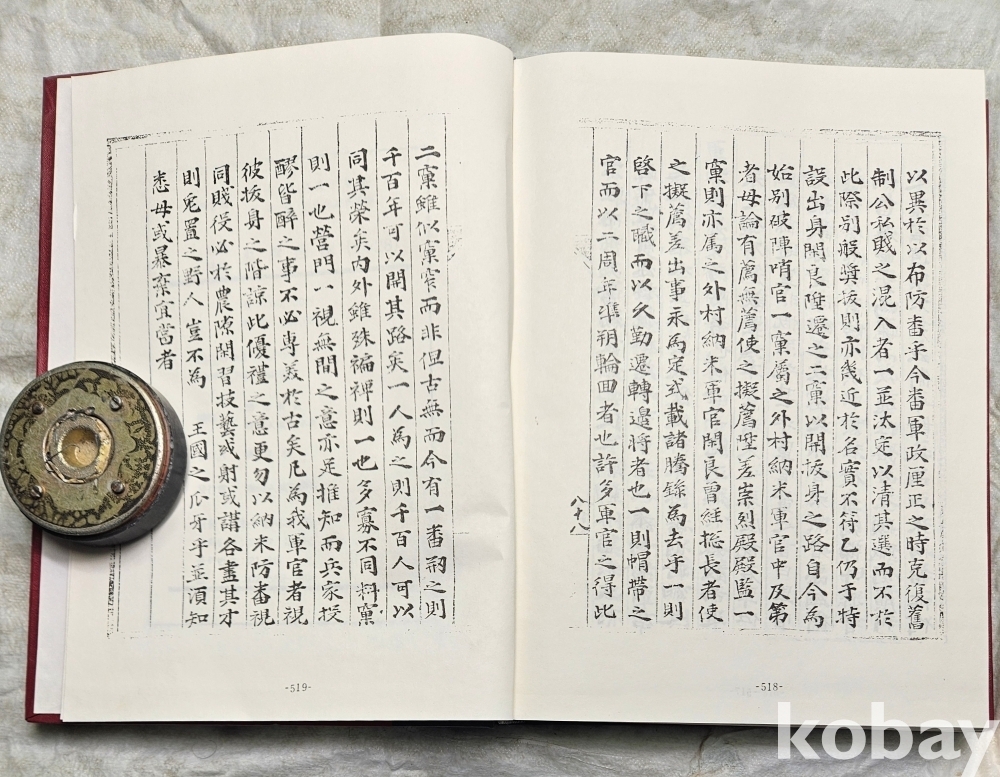 以異於以布防番乎今番軍政厘正之時克復舊
制公私賤之混入者一並汰定以清其選而不於
此際別般奬拔則亦幾近於名實不符乙仍于特
設出身閑良陞遷之二窠以開拔身之路自今為
始別破陣哨官一窠屬之外村納米軍官中及第
者毋論有薦無薦使之擬薦陞差崇烈殿殿監一
窠則亦屬之外村納米軍官閑良曾經摠長者使
之擬薦差出事永為定式載諸謄錄為去乎一則
啓下之職而以久勤遷轉邉將者也一則帽帶之
官而以二周年準朔輪回者也許多軍官之得此
八十八
-518-
二窠雖似窠窄而非但古無而今有一番剏之則
千百年可以開其路矣一人為之則千百人可以
同其榮矣內外雖殊褊裨則一也多寡不同料窠
則一也營門一視無間之意亦足推知而兵家投
醪皆醉之事不必專美於古矣凡為我軍官者視
彼拔身之階諒此優禮之意更勿以納米防番視
同賤役必於農隙閑習技藝或射或講各盡其才
則兎置之野人豈不為 王國之瓜牙乎並須知
悉毋或暴棄宜當者
-519-
kobay